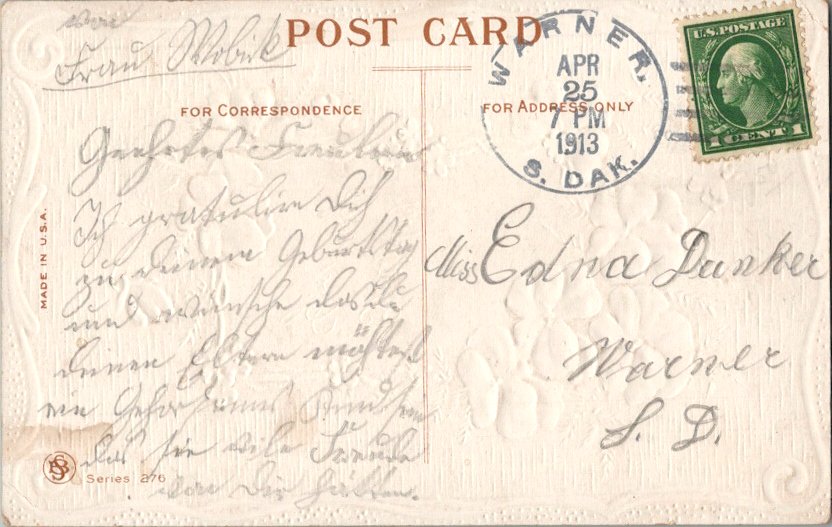 von
Frau Wobik
POST CARD
WARNER,
APR
25
7 PM
1913
S. DAK.
U.S. POSTAGE
1 CENT 1
FOR CORRESPONDENCE
FOR ADDRESS ONLY
Geehrtes Freulein
Ich gratulire Dich
zu deinem Geburtstag
und wünsche das du
deinen Eltern möhtest
ein Gehorsames Kind sein
das sie vile Freude
von Dir hätten.
Miss Edna Dunker
Warner
S. D.
MADE IN U.S.A.
Series 276